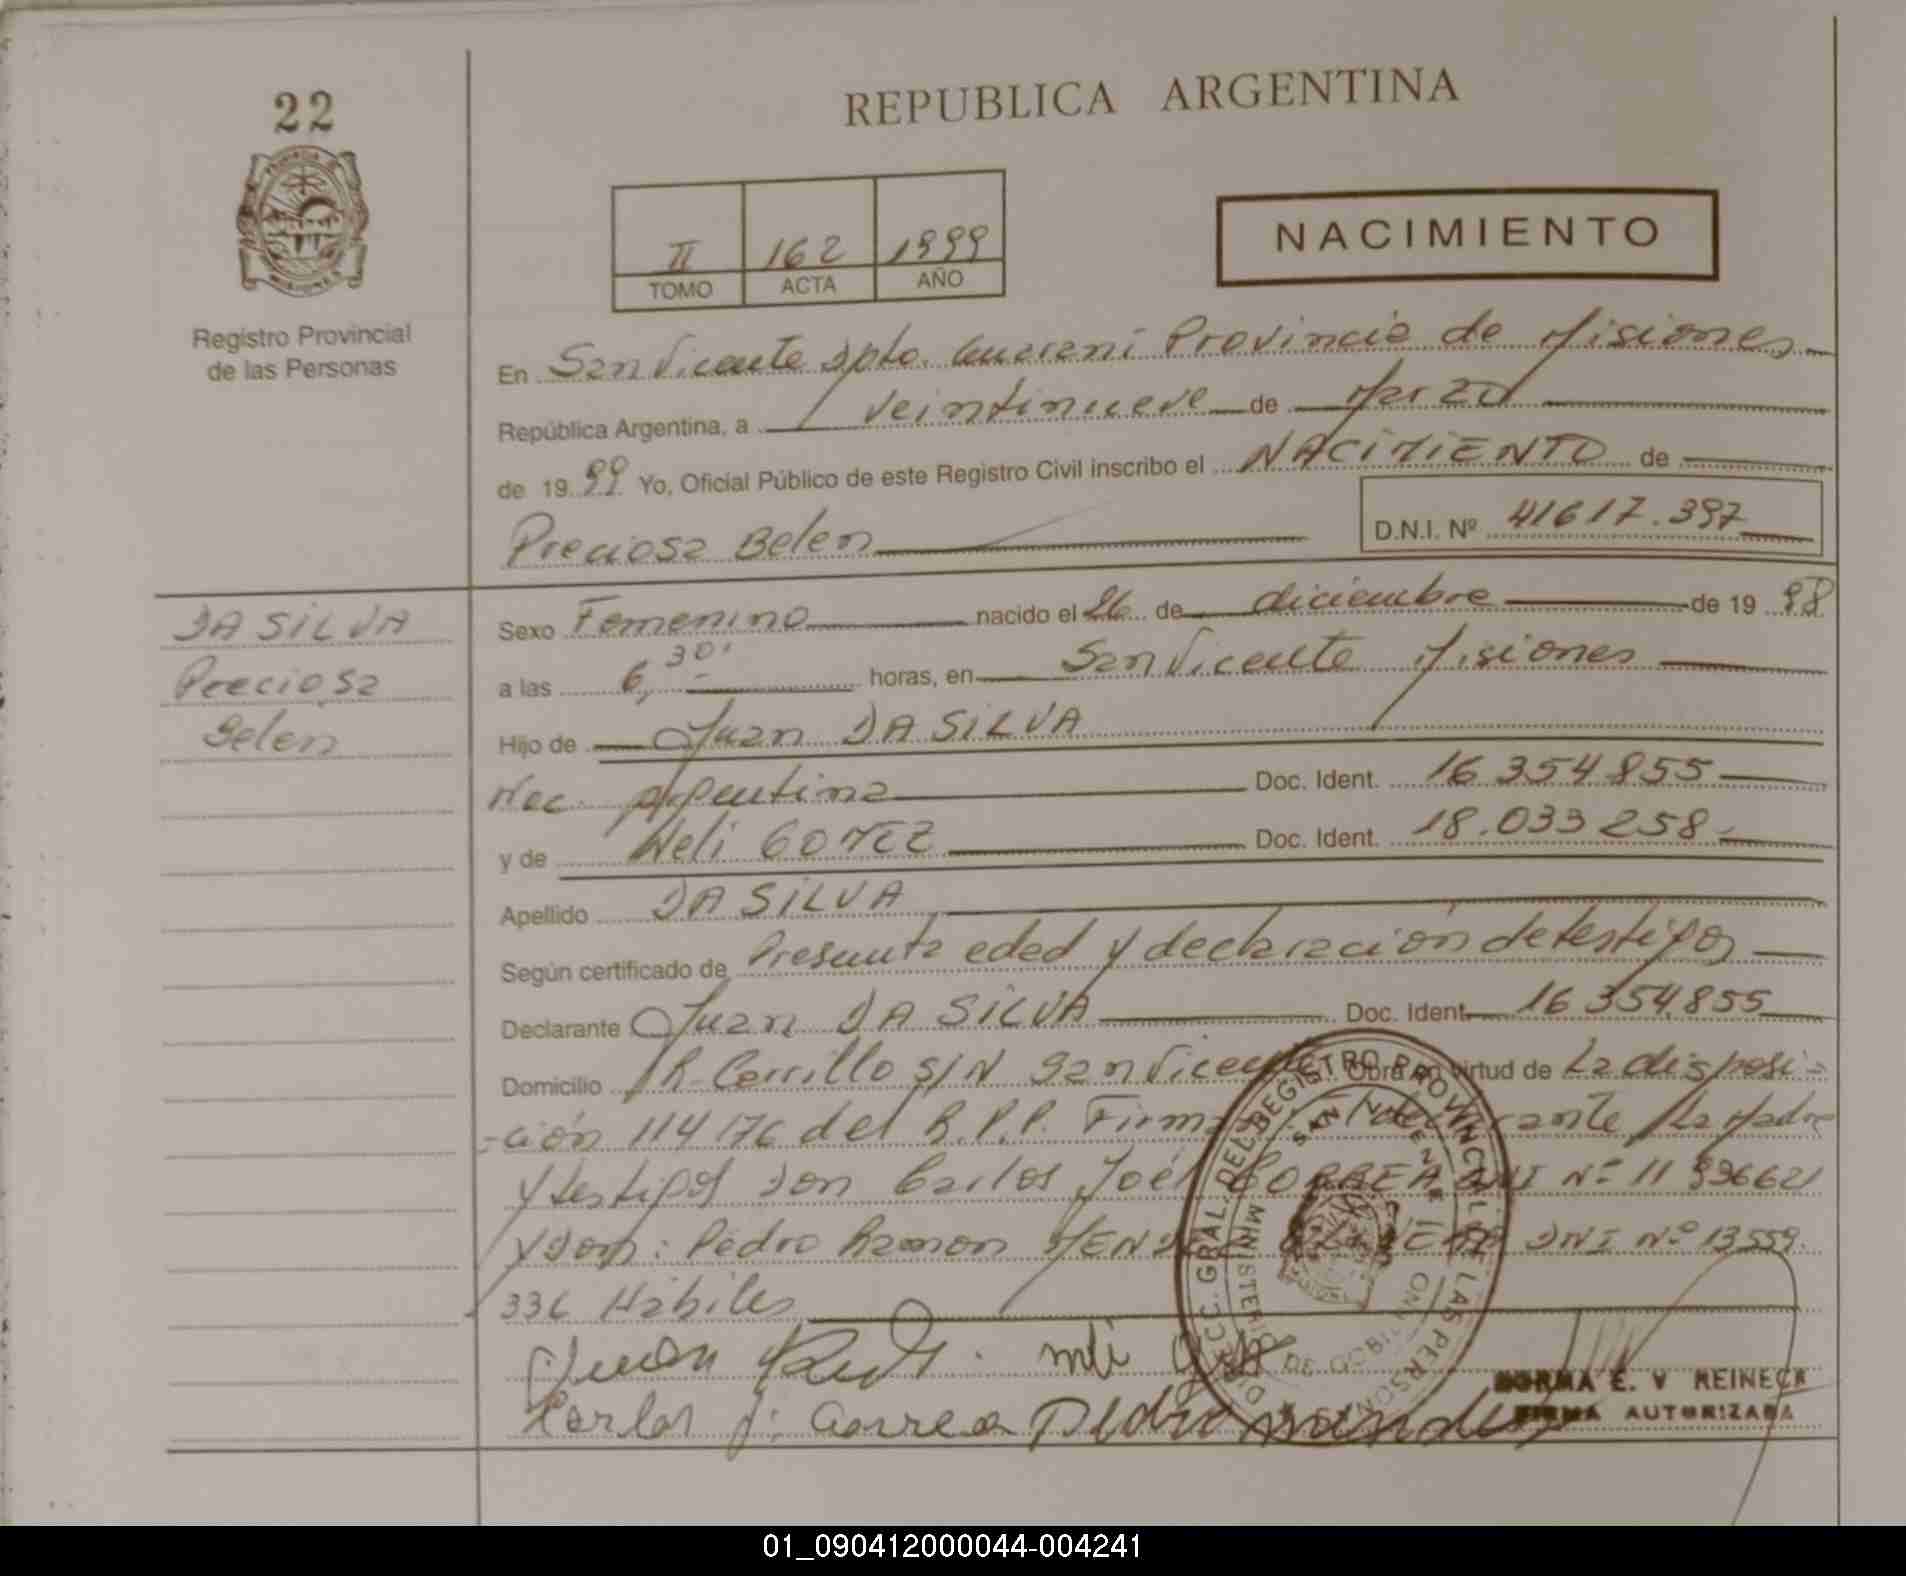 22
REPUBLICA ARGENTINA
II 162 1999
TOMO ACTA AÑO
NACIMIENTO
Registro Provincial
de las Personas
En San Vicente Dpto. Guarani Provincia de Misiones
República Argentina, a veintinueve de Marzo
de 1999 Yo, Oficial Público de este Registro Civil inscribo el NACIMIENTO de
Preciosa Belen D.N.I. Nº 41617.397
DA SILVA
Preciosa
Belen
Sexo Femenino nacido el 26 de diciembre de 1998
a las 6,30' horas, en San Vicente Misiones
Hijo de Juan DA SILVA
Nac. argentina Doc. Ident. 16 354 855
y de Neli GOMEZ Doc. Ident. 18.033 258
Apellido DA SILVA
Según certificado de Presunta edad y declaración de testigos
Declarante Juan DA SILVA Doc. Ident. 16 354.855
Domicilio R. Carrillo S/N San Vicente Obra en virtud de La disposi-
-ción 114 176 del R.P.P. Firman: El declarante La Madre
y testigos Don Carlos Joel CORREA DNI Nº 11 996621
y Don: Pedro Ramon DNI Nº 13559.
336 Hábiles
Juan
Carlos J. Correa Pedro
DIRECC. GRAL. DEL REGISTRO PROVINCIAL DE LAS PERSONAS
MINISTERIO DE GOBIERNO
SAN VICENTE
NORMA E. V REINECK
FIRMA AUTORIZADA
01_090412000044-004241